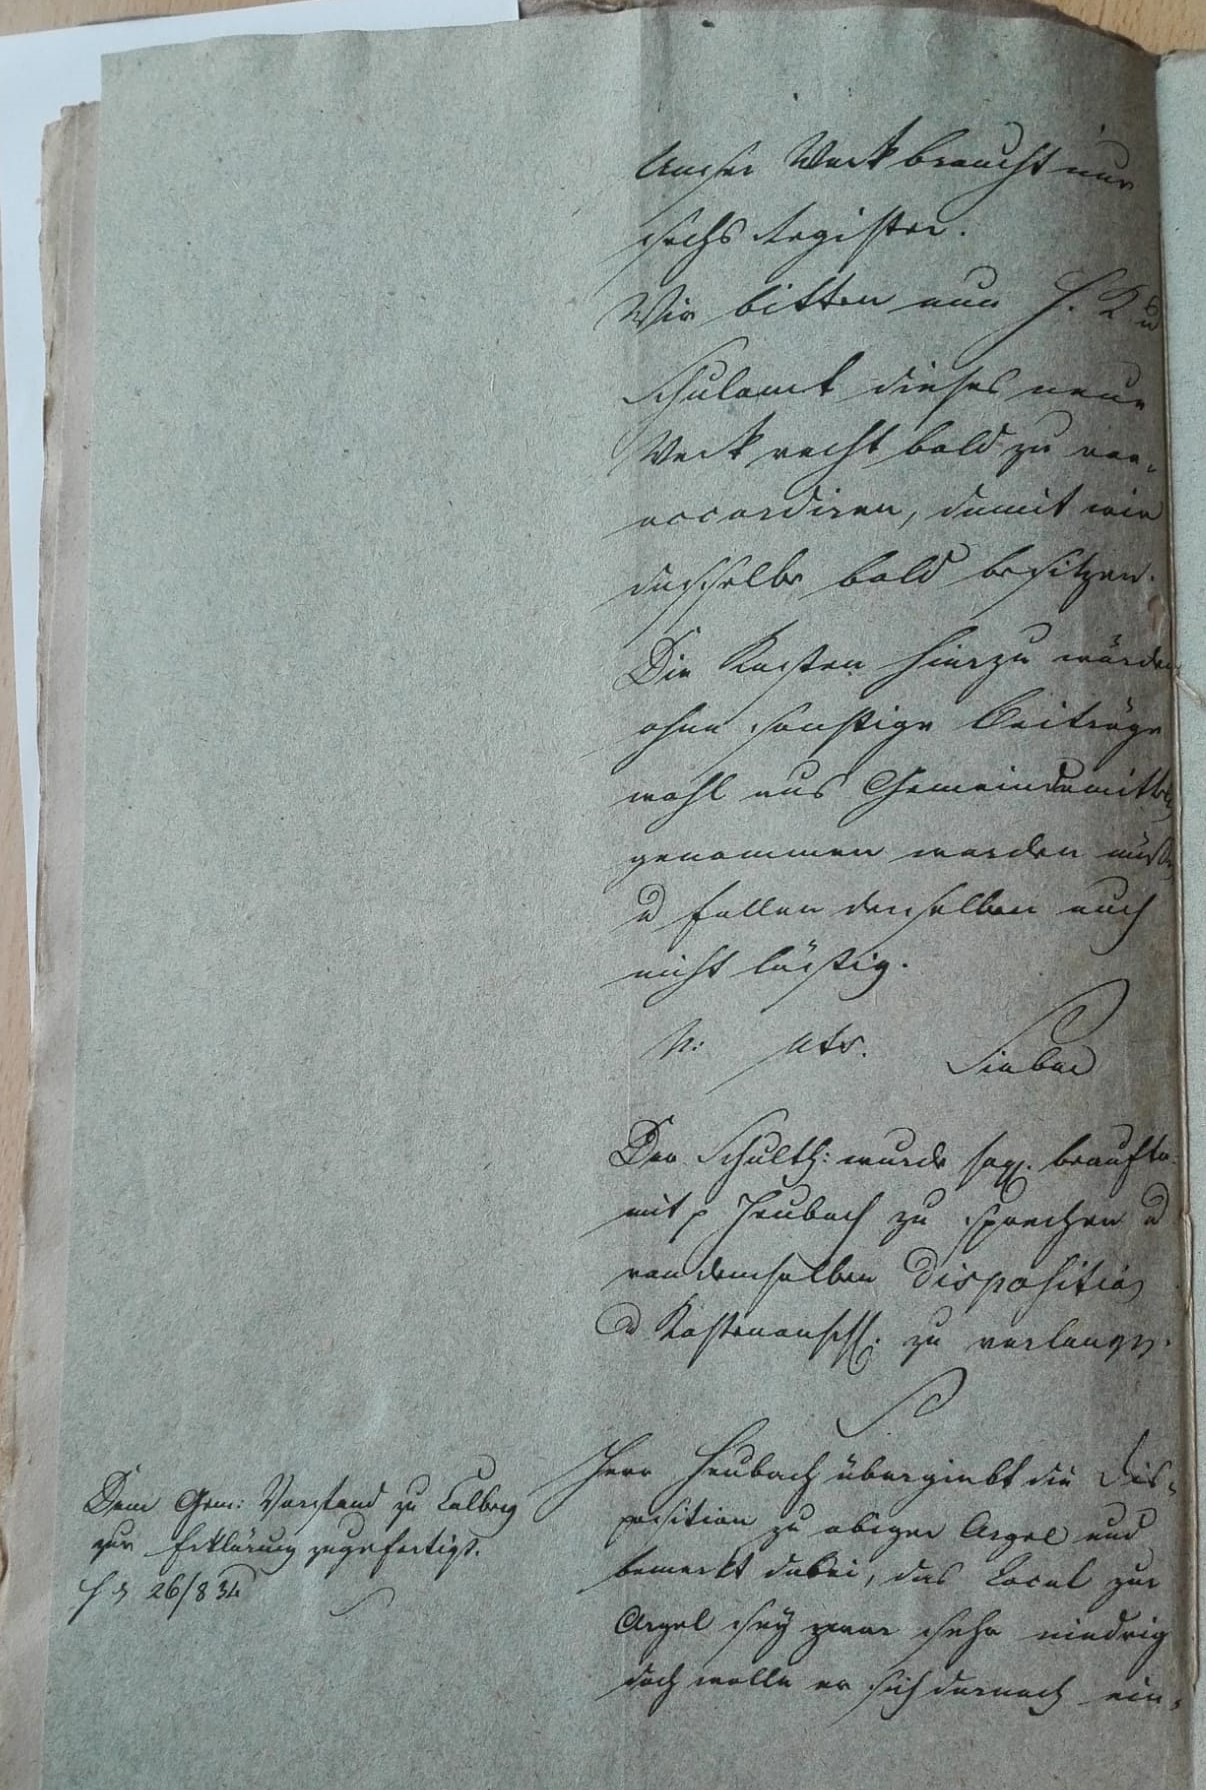 Unser Werk braucht nur
sechs Register.
Wir bitten nun H. K u
Schulamt dieses neue
Werk recht bald zu ver-
accordiren, damit wir
dasselbe bald besitzen.
Die Kosten hierzu würden
ohne sonstige Beiträge
wohl aus Gemeindemitteln
genommen werden müßen
u fallen denselben auch
nicht lästig.
N: utr. Sieber
Der Schulth: wurde beauftr.
mit p Heubach zu sprechen u
von demselben Disposition
u Kostenansch. zu verlangen.
Herr Heubach übergiebt die Dis-
position zu obiger Orgel und
bemerkt dabei, das Local zur
Orgel sey zwar sehr niedrig
doch wolle er sich darnach ein-
Dem Gem: Vorstand zu Callberg
zur Erklärung zugefertigt.
26/8 34